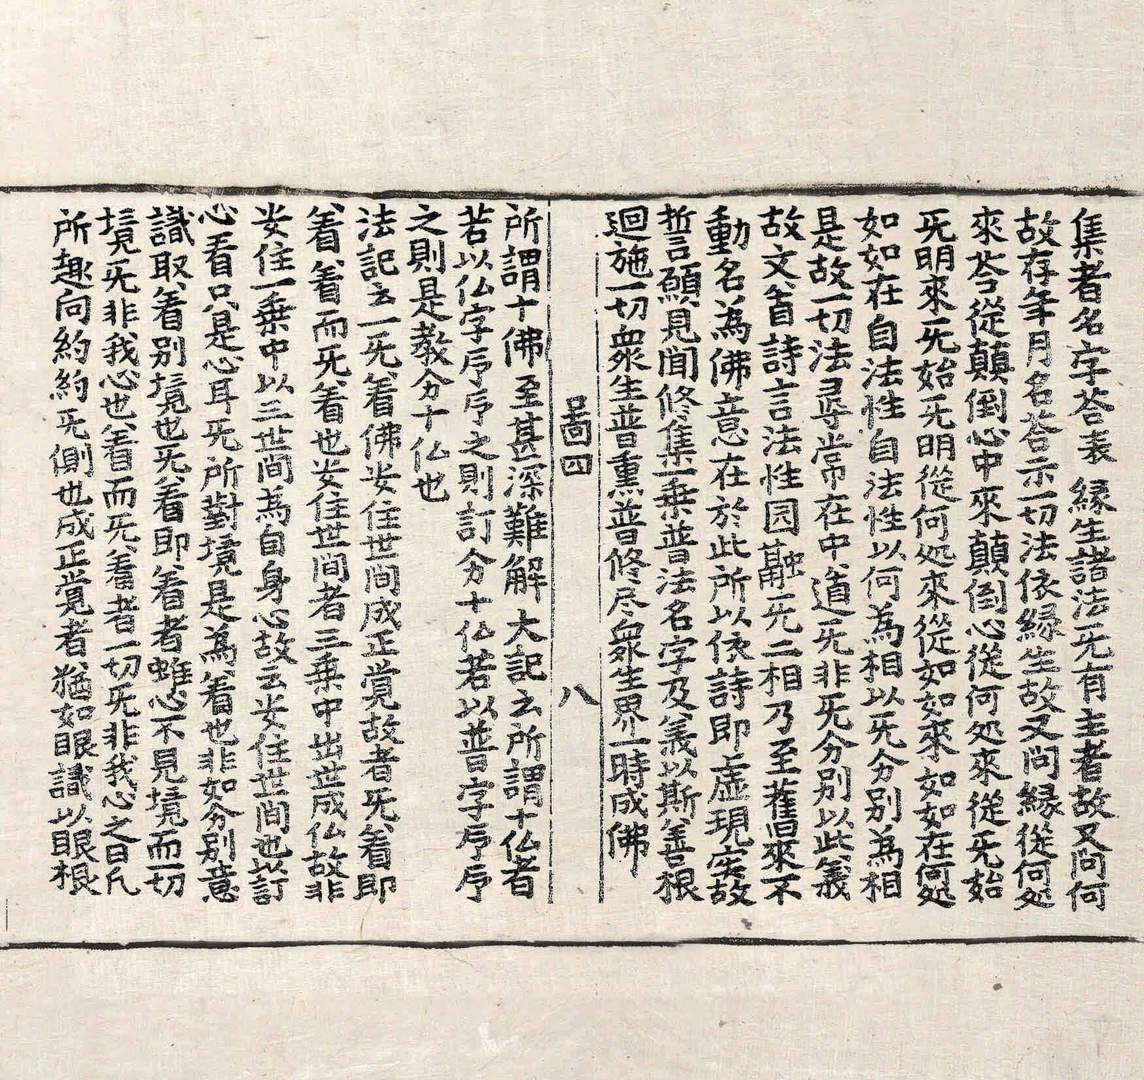 集者名字荅表 緣生諸法旡有主者故又問何
故存年月名荅示一切法依緣生故又問緣從何処
來荅從顛倒心中來顛倒心從何処來從旡始
旡明來旡始旡明從何処來從如如來如如在何処
如如在自法性自法性以何為相以旡分別為相
是故一切法尋常在中道旡非旡分別以此義
故文首詩言法性园融旡二相乃至舊来不
動名為佛意在於此所以依詩即虛現実故
誓願見聞修集一乗普法名字及義以斯善根
迴施一切衆生普熏普修尽衆生界一時成佛
圖四 八
所謂十佛至甚深難解 大記云所謂十仏者
若以仏字序序之則訂分十仏若以普字序序
之則是教分十仏也
法記云一旡着佛安住世間成正覚故者旡着即
着着而旡着也安住世間者三乗中出世成仏故非
安住一乗中以三世間為自身心故云安住世間也以訂
心看只是心耳旡所對境是為着也非如分別意
識取着別境也旡着即着者雖心不見境而一切
境旡非我心也着而旡着者一切旡非我心之日凡
所趣向約約旡側也成正覚者猶如眼識以眼根